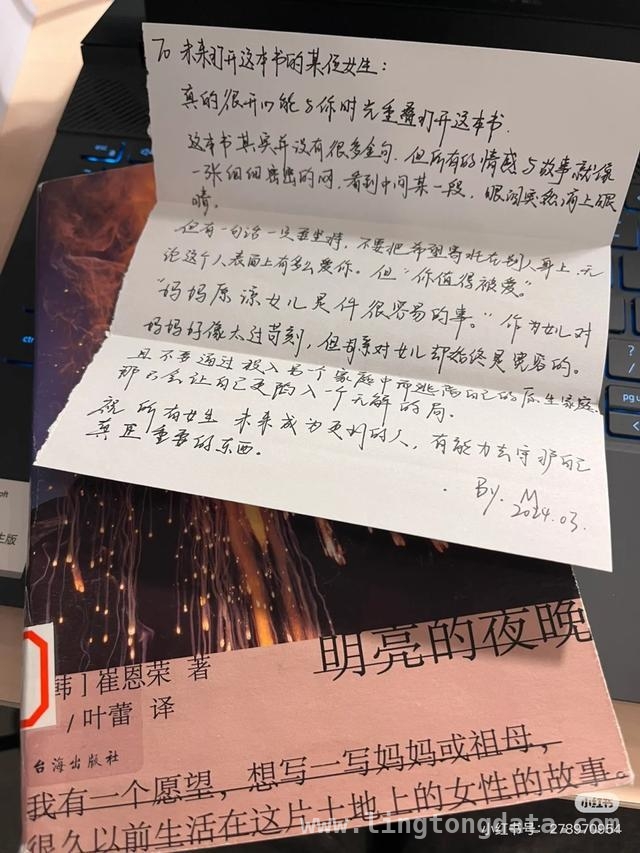 To 未来打开这本书的某位女生：
真的很开心能与你时光重叠打开这本书.
这本书其实并没有很多金句，但所有的情感与故事就像
一张细细密密的网，看到中间某一段，眼泪突然涌上眼
睛。
但有一句话一定要坚信，不要把希望寄托在别人身上，无
论这个人表面上有多么爱你。但“你值得被爱”。
“妈妈原谅女儿是件很容易的事。”作为女儿对
妈妈好像太过苛刻，但母亲对女儿却始终是宽容的。
且不要通过投入另一个家庭中而逃离自己的原生家庭，
那只会让自己更陷入一个无解的局。
祝所有女生 未来成为更好的人，有能力去守护自己
真正重要的东西。
By. M
2024.03.
明亮的夜晚
韩］崔恩荣 著
/叶蕾 译
台海出版社
我有一个愿望，想写一写妈妈或祖母，
很久以前生活在这片土地上的女性的故事。
ctrl
pg u
生版
小红书
小红书号：278970954
www.lingtongdata.com